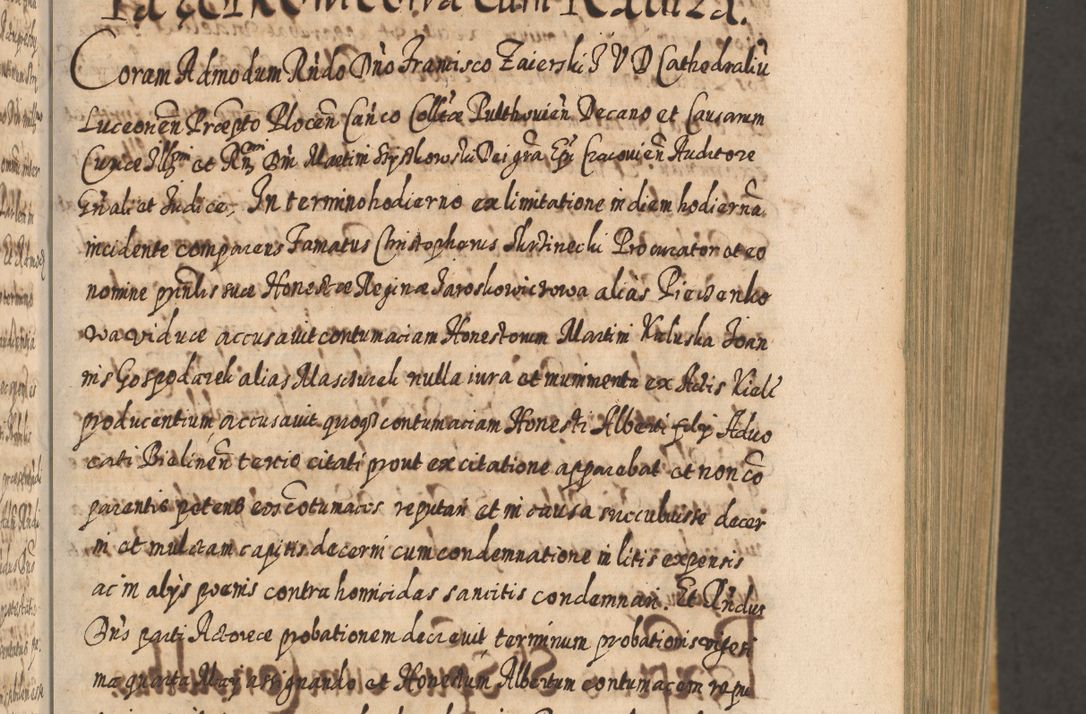 Coram Admodum Rndo Dno Francisco Zaierski J V D Cathedraliu
Luceoren Præpto Plocen Canco Colltæ Pulthovien Decano et Causarum
Curiæ Illmi et Rnmi Dni Martini Szyszkowski Dei gra Epi Cracovien Auditore
Gnali et Judice, In termino hodierno ex limitatione in diem hodierna
incidente comparens Famatus Christophorus Procurator et eo
nomine prinlis suæ Honestæ Reginæ Jaroskowiczowa alias Pietzenko
wa viduæ accusavit contumaciam Honestorum Martini Kuluska Joan
nis Gospodarek alias nulla iura et munimenta ex Actis
producentium accusavit quoq contumaciam Honesti Alberti filij Advo
cati Bielinen tertio citati prout ex citatione apparebat et non co
parentis petens eos cotumaces reputari et in causa succubuisse decer
ni et mulctam capitis decerni cum condemnatione in litis expensis
ac in alijs poenis contra homicidas sancitis condemnari. Et Rndus
Dns parti Actoreæ probationem decrevit terminum probationis vigesi
ma quarta Maij assignando et Honestum Albertum contumacem repu